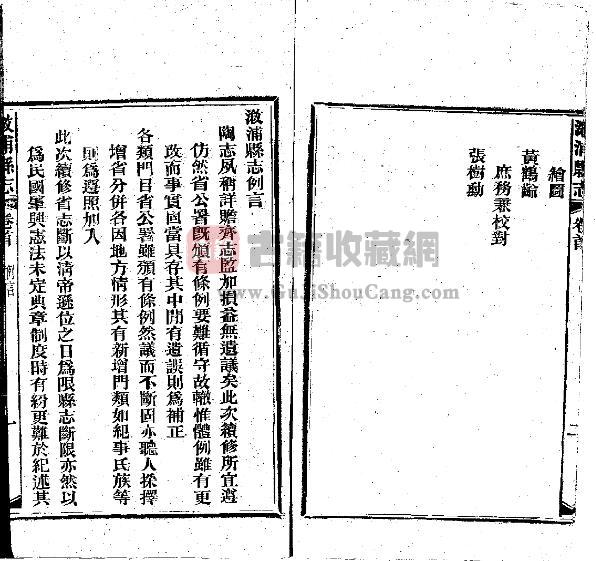 溆浦縣志
卷首
二
繪圖
黃鶴齡
庶務兼校對
張樹勳
溆浦縣志例言
陶志夙稱詳贍齊志踵加損益無遺議矣此次續修所宜遵
仿然省公署旣頒有條例要難循守故轍惟體例雖有更
改而事實固當具存其中間有遺誤則爲補正
各類門目省公署雖頒有條例然議而不斷固亦聽人採擇
增省分併各因地方情形其有新增門類如紀事氏族等
則爲遵照加入
此次續修省志斷以清帝遜位之日爲限縣志斷限亦然以
爲民國肇興憲法未定典章制度時有紛更難於紀述其
溆浦縣志
卷首
例言
一
古籍收藏網
www.GuJiShouCang.com